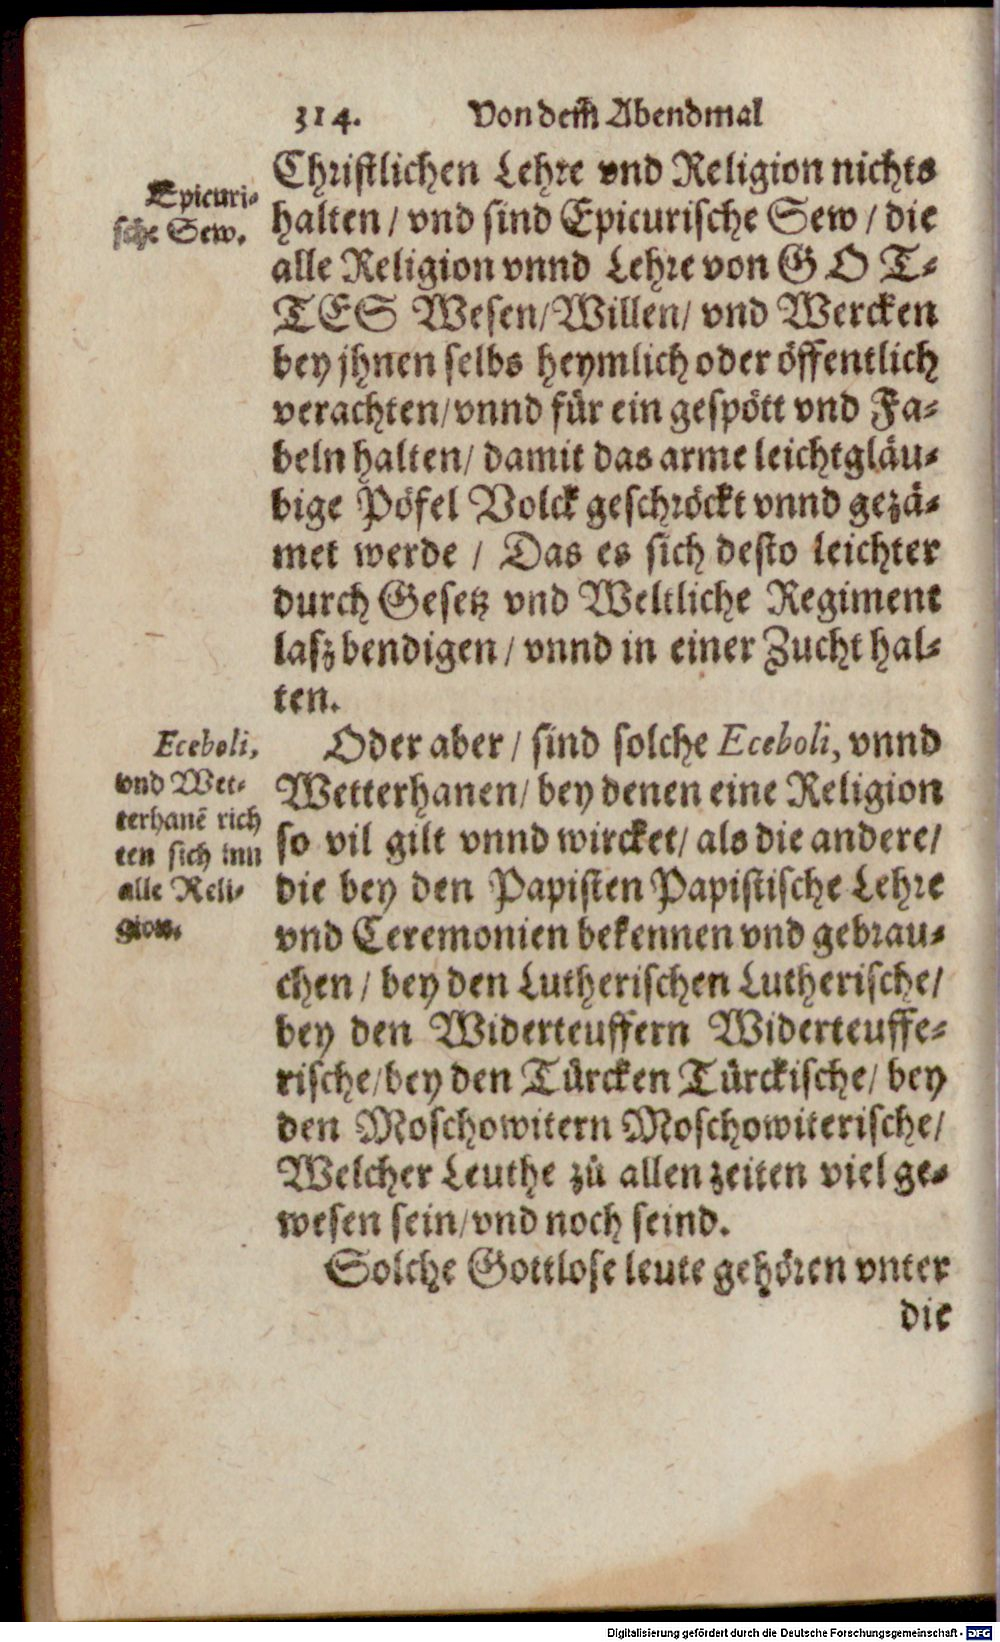 314. Von dem Abendmal
Christlichen Lehre vnd Religion nichts
halten / vnd sind Epicurische Sew / die
alle Religion vnnd Lehre von GOT-
TES Wesen/Willen/ vnd Wercken
bey jhnen selbs heymlich oder öffentlich
verachten/vnnd für ein gespött vnd Fa-
beln halten/ damit das arme leichtgläu-
bige Pöfel Volck geschröckt vnnd gezä-
met werde / Das es sich desto leichter
durch Gesetz vnd Weltliche Regiment
lasz bendigen / vnnd in einer Zucht hal-
ten.
Epicuri-
sche Sew.
Oder aber / sind solche Eceboli, vnnd
Wetterhanen/ bey denen eine Religion
so vil gilt vnnd wircket/ als die andere/
die bey den Papisten Papistische Lehre
vnd Ceremonien bekennen vnd gebrau-
chen / bey den Lutherischen Lutherische/
bey den Widerteuffern Widerteuffe-
rische/bey den Türcken Türckische/ bey
den Moschowitern Moschowiterische/
Welcher Leuthe zů allen zeiten viel ge-
wesen sein/vnd noch seind.
Eceboli,
vnd Wet-
terhanē rich
ten sich inn
alle Reli-
gion.
Solche Gottlose leute gehören vnter
die
Digitalisierung gefördert durch die Deutsche Forschungsgemeinschaft - DFG